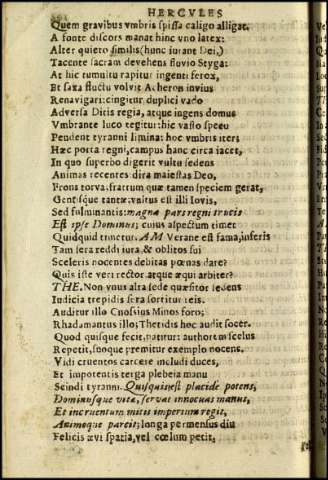 HERCVLES
Quem gravibus vmbris spissa caligo alligat.
A fonte discors manat hinc vno latex:
Alter quieto similis (hunc iurant Dei,)
Tacente sacram devehens fluvio Styga:
At hic tumultu rapitur ingenti ferox,
Et saxa fluctu volvit Acheron invius
Renavigari: cingitur duplici vado
Adversa Ditis regia, atque ingens domus
Vmbrante luco tegitur: hic vasto specu
Pendent tyranni limina: hoc vmbris iter:
Hæc porta regni, campus hanc circa iacet,
In quo superbo digerit vultu sedens
Animas recentes dira maiestas Deo,
Frons torva, fratrum quæ tamen speciem gerat,
Gentisque tantæ, vultus est illi Iovis,
Sed fulminantis: magna pars regni trucis
Est ipse Dominus; cuius aspectum timet
Quidquid timetur. AM Verane est fama, inferis
Tam sera reddi iura, & oblitos sui
Sceleris nocentes debitas pœnas dare?
Quis iste veri rector, atque æqui arbiter?
THE. Non vnus alta sede quæsitor sedens
Iudicia trepidis sera sortitur reis.
Auditur illo Cnossius Minos foro;
Rhadamantus illo; Thetidis hoc audit socer.
Quod quisque fecit, patitur: authorem scelus
Repetit, suoque premitur exemplo nocens.
Vidi cruentos carcere includi duces,
Et impotentis terga plebeia manu
Scindi tyranni. Quisquis est placide potens,
Dominusque vitæ, servat innocuas manus,
Et incruentum mitis imperium regit,
Animoque parcit; longa permensus diu
Felicis ævi spatia, vel cœlum petit,